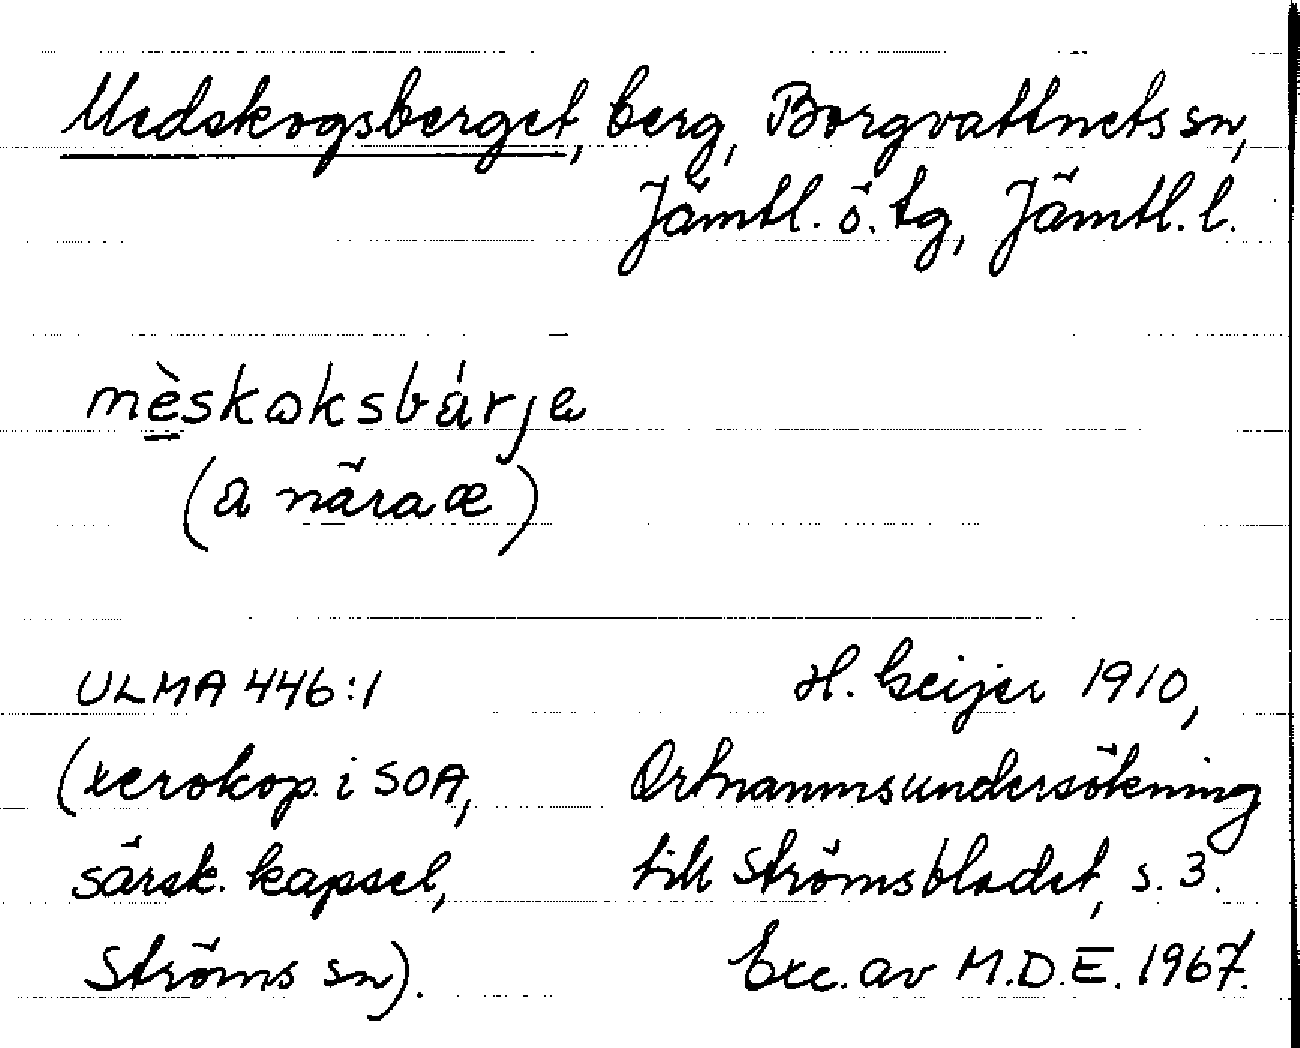 Medskogsberget, berg, Borgvattnets sn,
Jämtl. ö. tg, Jämtl. l.
mèskɷksbárjɐ
(a nära æ)
ULMA 446:1
H. Geijer 1910,
(xerokop. i SOA,
Ortnamnsundersökning
särsk. kapsel,
till Strömsbladet, s. 3.
Ströms sn).
Exc. av M.D.E. 1967.